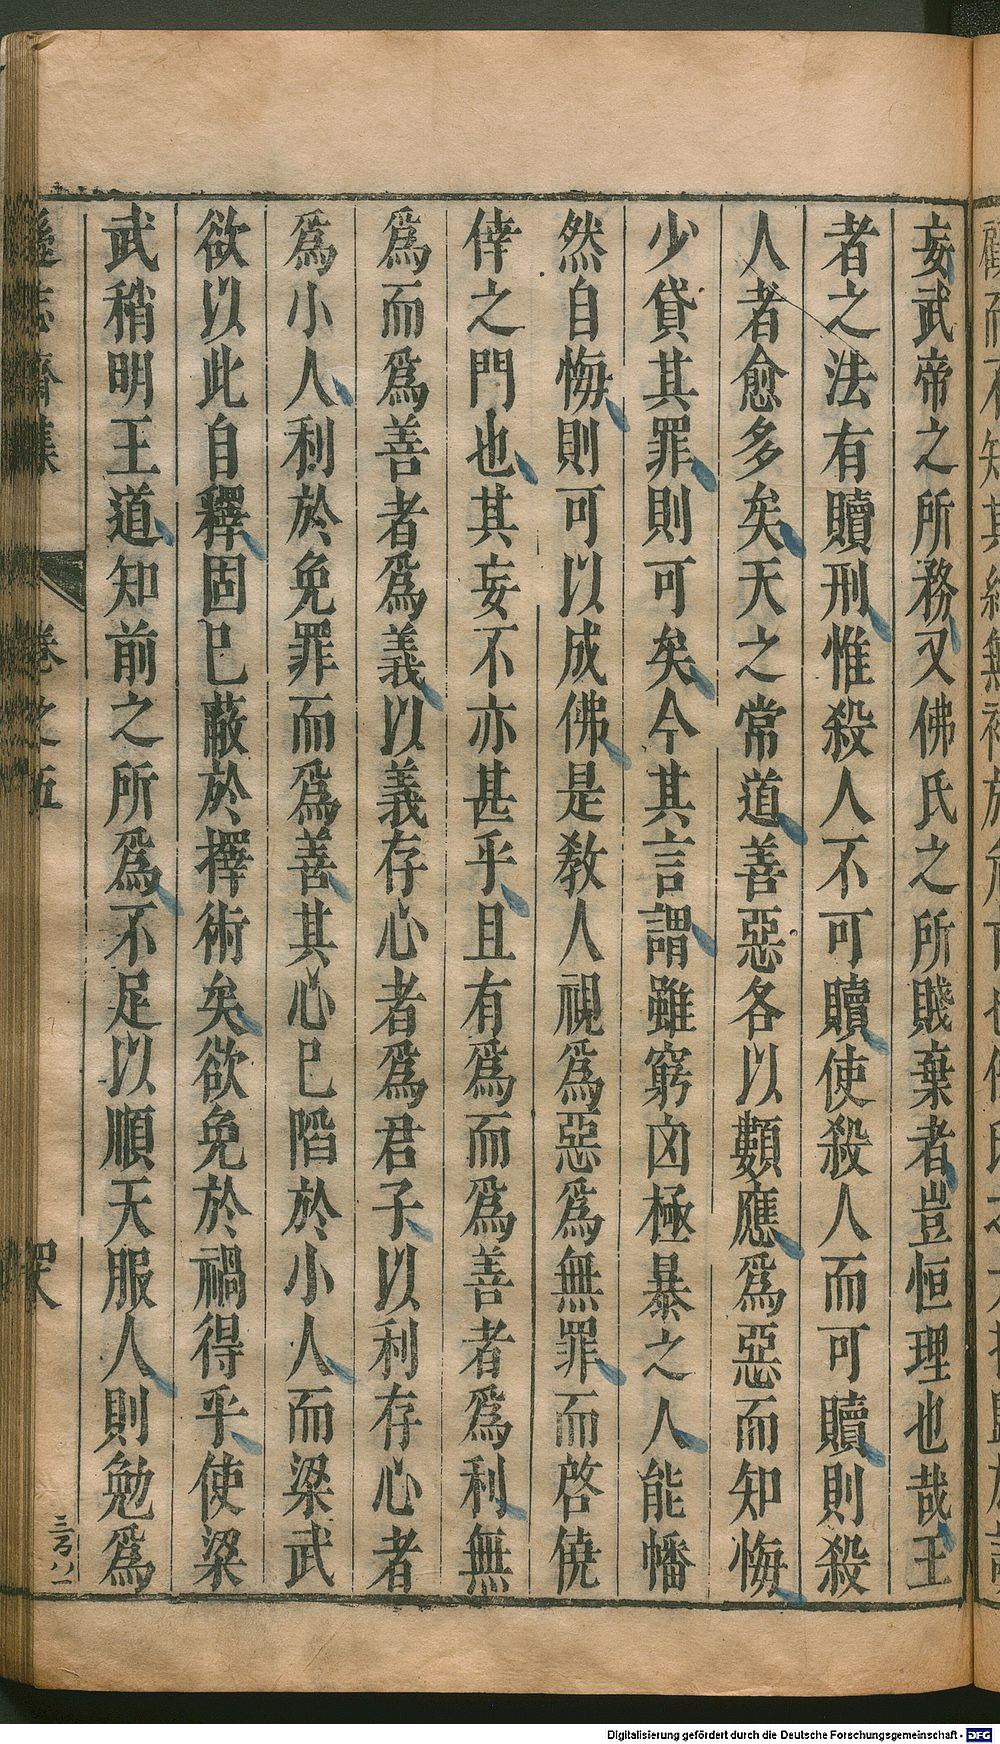 妄武帝之所務又佛氏之所賤棄者豈恒理也哉王
者之法有贖刑惟殺人不可贖使殺人而可贖則殺
人者愈多矣天之常道善惡各以類應爲惡而知悔
少貸其罪則可矣今其言謂雖窮凶極暴之人能幡
然自悔則可以成佛是教人視爲惡爲無罪而啓僥
倖之門也其妄不亦甚乎且有爲而爲善者爲利無
爲而爲善者爲義以義存心者爲君子以利存心者
爲小人利於免罪而爲善其心已陷於小人而梁武
欲以此自釋固已蔽於擇術矣欲免於禍得乎使梁
武稍明王道知前之所爲不足以順天服人則勉爲
三百八一
遜志齋集 卷之五
Digitalisierung gefördert durch die Deutsche Forschungsgemeinschaft - DFG